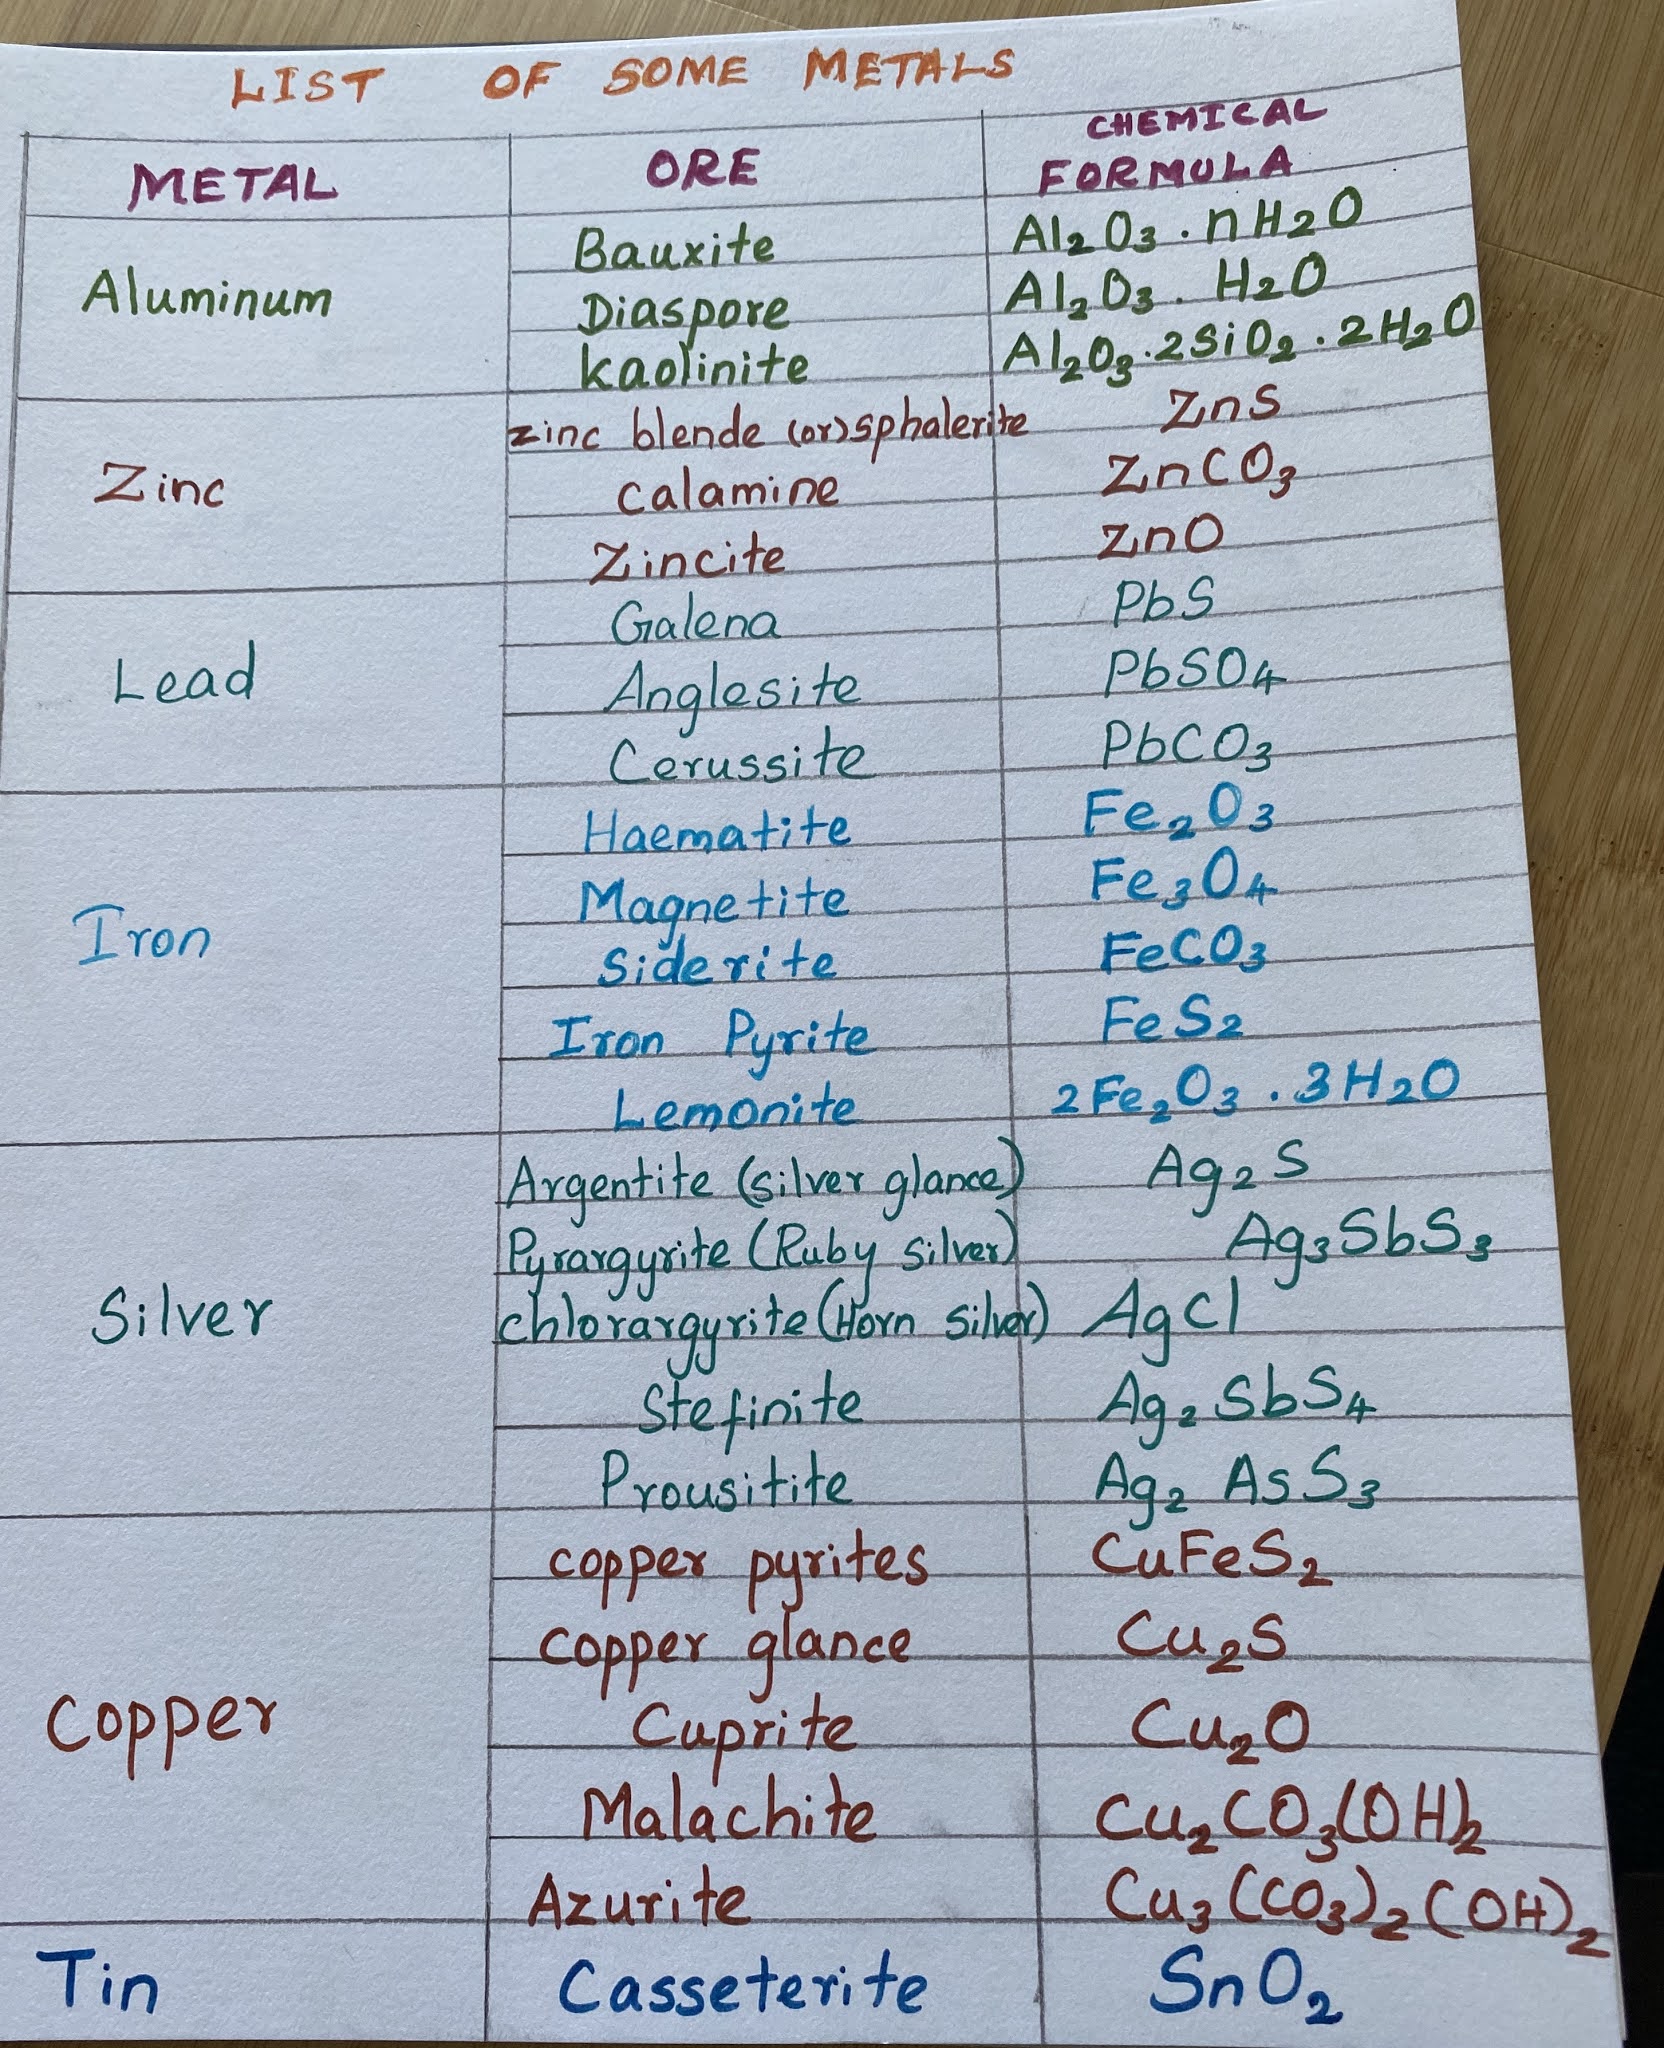 LIST OF SOME METALS
METAL ORE CHEMICAL FORMULA
Aluminum
Bauxite Al₂O₃ . nH₂O
Diaspore Al₂O₃ . H₂O
kaolinite Al₂O₃ . 2SiO₂ . 2H₂O
Zinc
zinc blende (or) sphalerite ZnS
calamine ZnCO₃
Zincite ZnO
Lead
Galena PbS
Anglesite PbSO₄
Cerussite PbCO₃
Iron
Haematite Fe₂O₃
Magnetite Fe₃O₄
Siderite FeCO₃
Iron Pyrite FeS₂
Lemonite 2Fe₂O₃ . 3H₂O
Silver
Argentite (silver glance) Ag₂S
Pyrargyrite (Ruby silver) Ag₃SbS₃
chlorargyrite (Horn silver) AgCl
Stefinite Ag₂SbS₄
Prousitite Ag₂AsS₃
Copper
copper pyrites CuFeS₂
copper glance Cu₂S
Cuprite Cu₂O
Malachite Cu₂CO₃(OH)₂
Azurite Cu₃(CO₃)₂(OH)₂
Tin Casseterite SnO₂